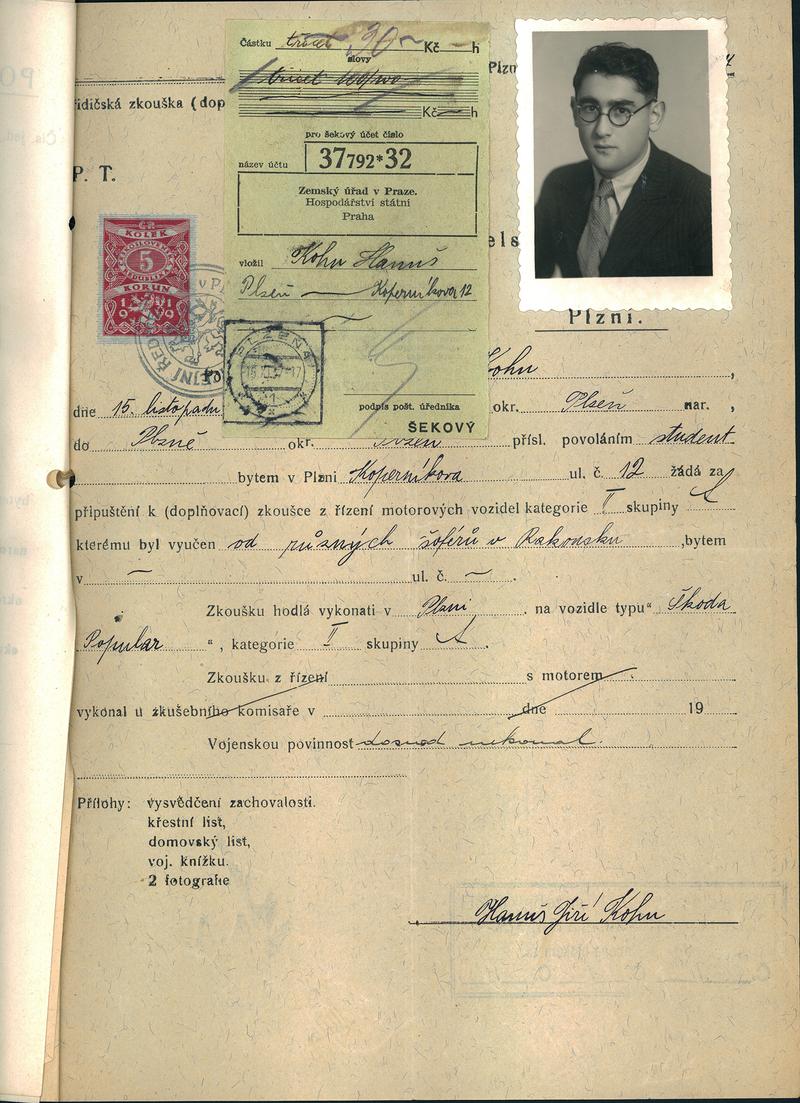 Částku třicet 30 Kč — h
slovy
Kč — h
pro šekový účet číslo
název účtu 37792*32
Zemský úřad v Praze.
Hospodářství státní
Praha
vložil Kohn Hanuš
Plzeň — Koperníkova 12
PLZEŇ 1
podpis pošt. úředníka
ŠEKOVÝ
Plzn
řidičská zkouška (dop
P. T.
els
KOLEK
5
KORUN
1919
v P
Plzni.
Kohn ,
dne 15. listopadu okr. Plzeň nar. ,
do Plzně okr. Plzeň přísl. povoláním student
bytem v Plzni Koperníkova ul. č. 12 žádá za
připuštění k (doplňovací) zkoušce z řízení motorových vozidel kategorie II skupiny A
kterému byl vyučen od různých šoférů v Rakousku ,bytem
v — ul. č. — .
Zkoušku hodlá vykonati v Plzni na vozidle typu "Škoda
Popular ", kategorie II skupiny A .
Zkoušku z řízení s motorem
vykonal u zkušebního komisaře v dne 19
Vojenskou povinnost dosud nekonal.
Přílohy: vysvědčení zachovalosti.
křestní list,
domovský list,
voj. knížku.
2 fotografie
Hanuš Jiří Kohn